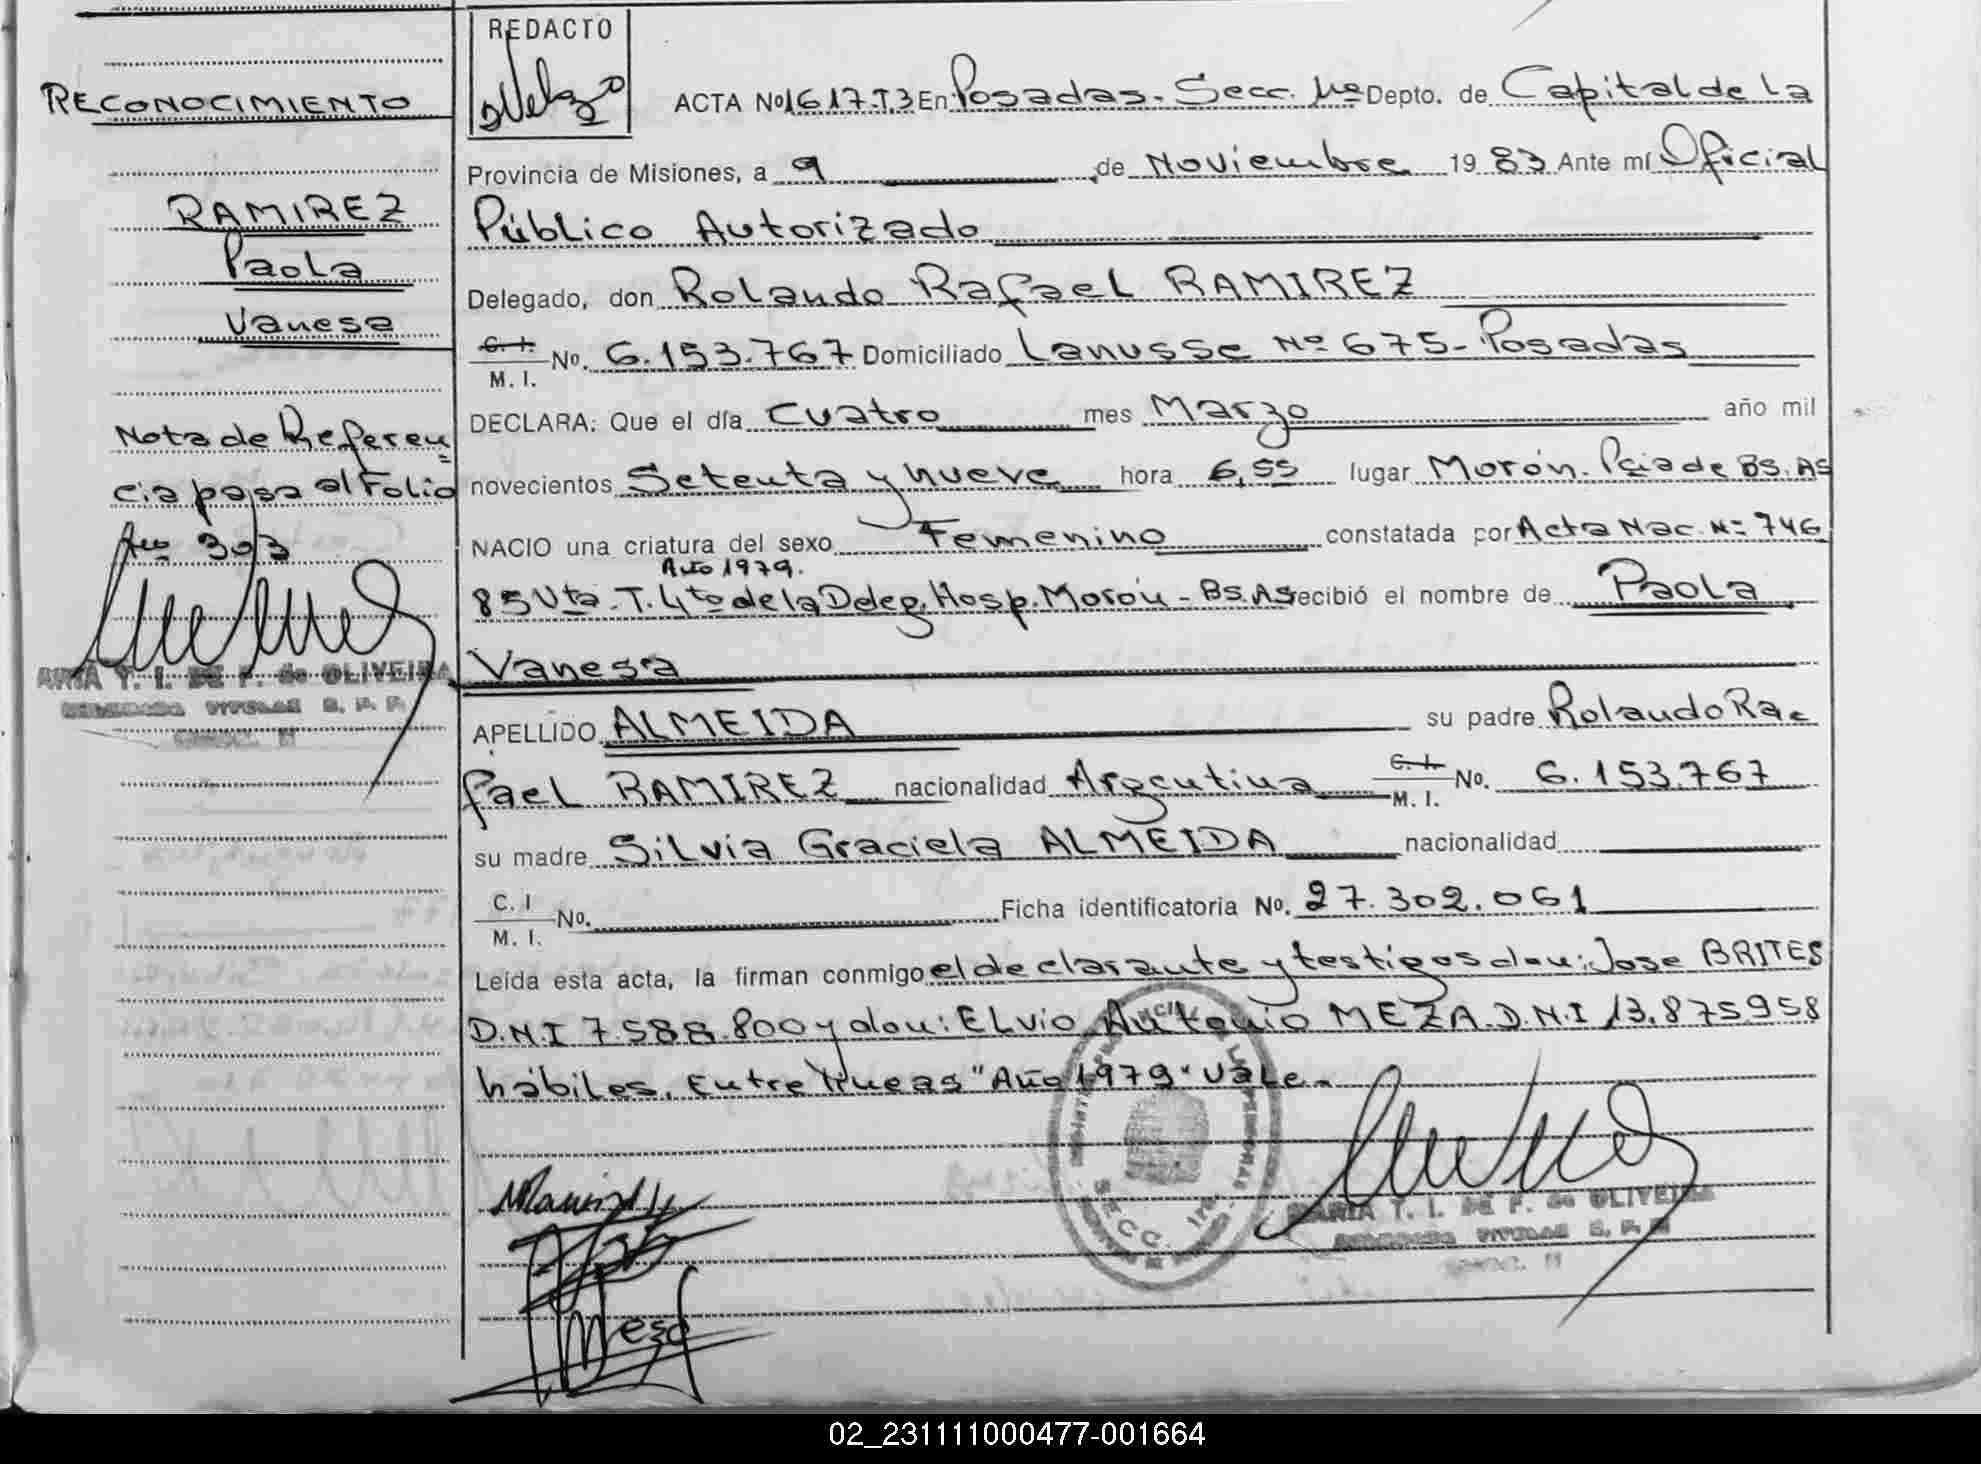 RECONOCIMIENTO
RAMIREZ
Paola
Vanesa
Nota de Referen=
cia pasa al Folio
Nº 303
ARIA T. I. DE F. de OLIVEIRA
REDACTO
ACTA Nº 1617.T.3 En Posadas. Secc. 1ª Depto. de Capital de la
Provincia de Misiones, a 9 de Noviembre 1983 Ante mí Oficial
Público Autorizado
Delegado, don Rolando Rafael RAMIREZ
C. I. M. I. No. 6.153.767 Domiciliado Lanusse Nº 675- Posadas
DECLARA: Que el día Cuatro mes Marzo año mil
novecientos Setenta y nueve hora 6,55 lugar Morón. Pcia de Bs. As
NACIO una criatura del sexo Femenino constatada por Acta Nac. Nº 746
Año 1979.
85 Vta. T. 4to de la Deleg. Hosp. Morón - Bs. As recibió el nombre de Paola
Vanesa
APELLIDO ALMEIDA su padre Rolando Ra=
fael RAMIREZ nacionalidad Argentina C. I. M. I. No. 6.153.767
su madre Silvia Graciela ALMEIDA nacionalidad
C. I M. I. No. Ficha identificatoria No. 27.302.061
Leída esta acta, la firman conmigo el declarante y testigos don: Jose BRITES
D.N.I 7.588.800 y don: Elvio Antonio MEZA. D.N.I 13.875958
hábiles. Entre líneas "Año 1979" Vale.
SECC. 1ra
MARIA T. I. DE F. de OLIVEIRA
Meza
02_231111000477-001664